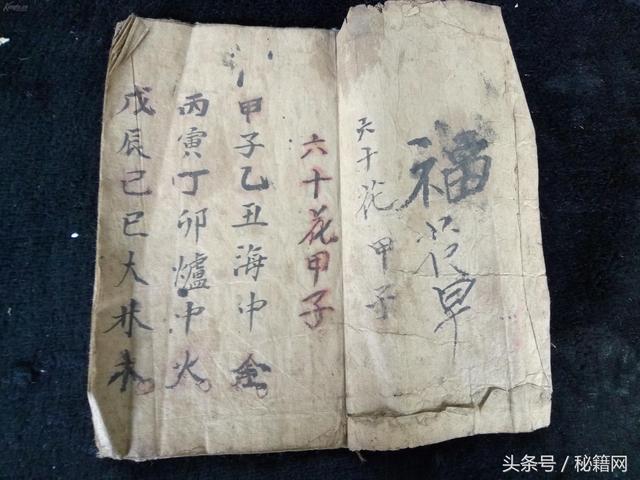 福
六十花甲子
六十花甲子
甲子乙丑海中金
丙寅丁卯爐中火
戊辰己巳大林木
头条号 / 秘籍网